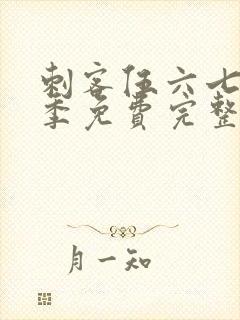 刺客伍六七
季免费完整
月一知